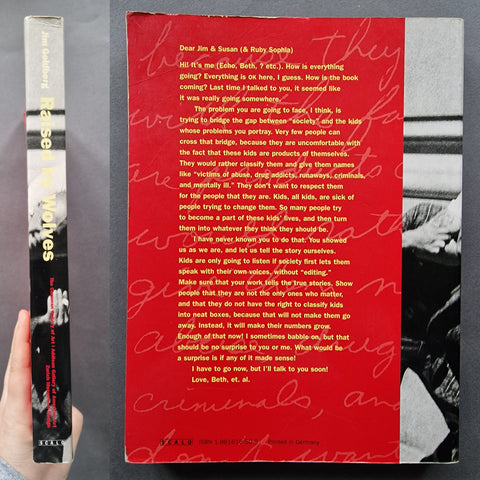 Jim Goldberg
Raised by Wolves
SCALO
Dear Jim & Susan (& Ruby Sophia)
Hi! It's me (Echo, Beth, ? etc.). How is everything
going? Everything is ok here, I guess. How is the book
coming? Last time I talked to you, it seemed like
it was really going somewhere.
The problem you are going to face, I think, is
trying to bridge the gap between "society" and the kids
whose problems you portray. Very few people can
cross that bridge, because they are uncomfortable with
the fact that these kids are products of themselves.
They would rather classify them and give them names
like "victims of abuse, drug addicts, runaways, criminals,
and mentally ill." They don't want to respect them
for the people that they are. Kids, all kids, are sick of
people trying to change them. So many people try
to become a part of these kids' lives, and then turn
them into whatever they think they should be.
I have never known you to do that. You showed
us as we are, and let us tell the story ourselves.
Kids are only going to listen if society first lets them
speak with their own voices, without "editing."
Make sure that your work tells the true stories. Show
people that they are not the only ones who matter,
and that they do not have the right to classify kids
into neat boxes, because that will not make them go
away. Instead, it will make their numbers grow.
Enough of that now! I sometimes babble on, but that
should be no surprise to you or me. What would be
a surprise is if any of it made sense!
I have to go now, but I'll talk to you soon!
Love, Beth, et. al.
SCALO
Printed in Germany
criminals, and
don't want